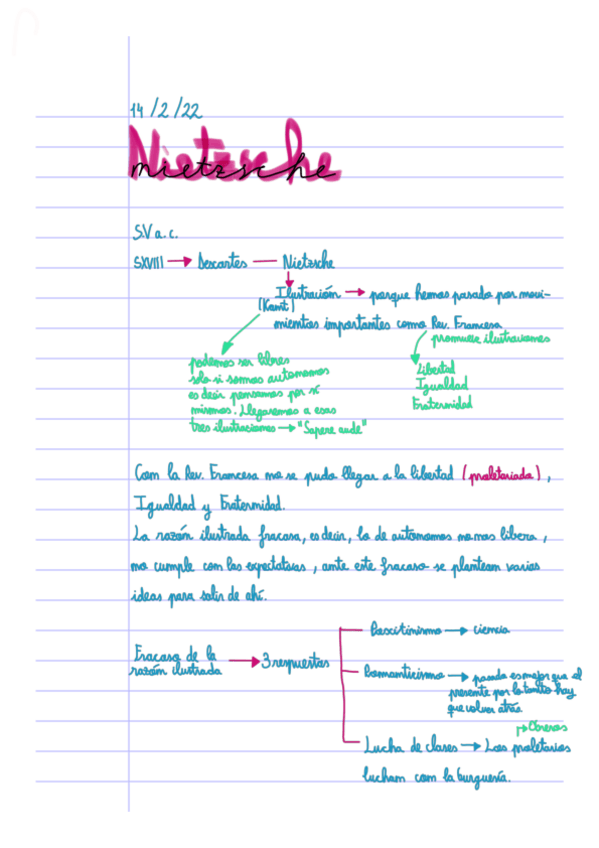 14/2/22
Nietzsche
nietzsche
S.V a.c.
SXVIII → Descartes — Nietzsche
Ilustración → porque hemos pasado por movi-
(Kant)
mientos importantes como Rev. Francesa
promueve ilustraciones
podemos ser libres
solo si somos autonomos
es decir pensamos por sí
mismos. Llegaremos a esas
tres ilustraciones → "Sapere aude"
Libertad
Igualdad
Fraternidad
Con la Rev. Francesa no se pudo llegar a la libertad (proletariado),
Igualdad y Fraternidad.
La razón ilustrada fracasa, es decir, lo de autonomos no nos libera,
no cumple con las expectativas, ante este fracaso se plantean varias
ideas para salir de ahí.
Fracaso de la
razón ilustrada → 3 respuestas
→ ciencia
Romanticismo → pasado es mejor que el
presente por lo tanto hay
que volver atrás
→ Obreros
Lucha de clases → Los proletarios
luchan con la burguesía.